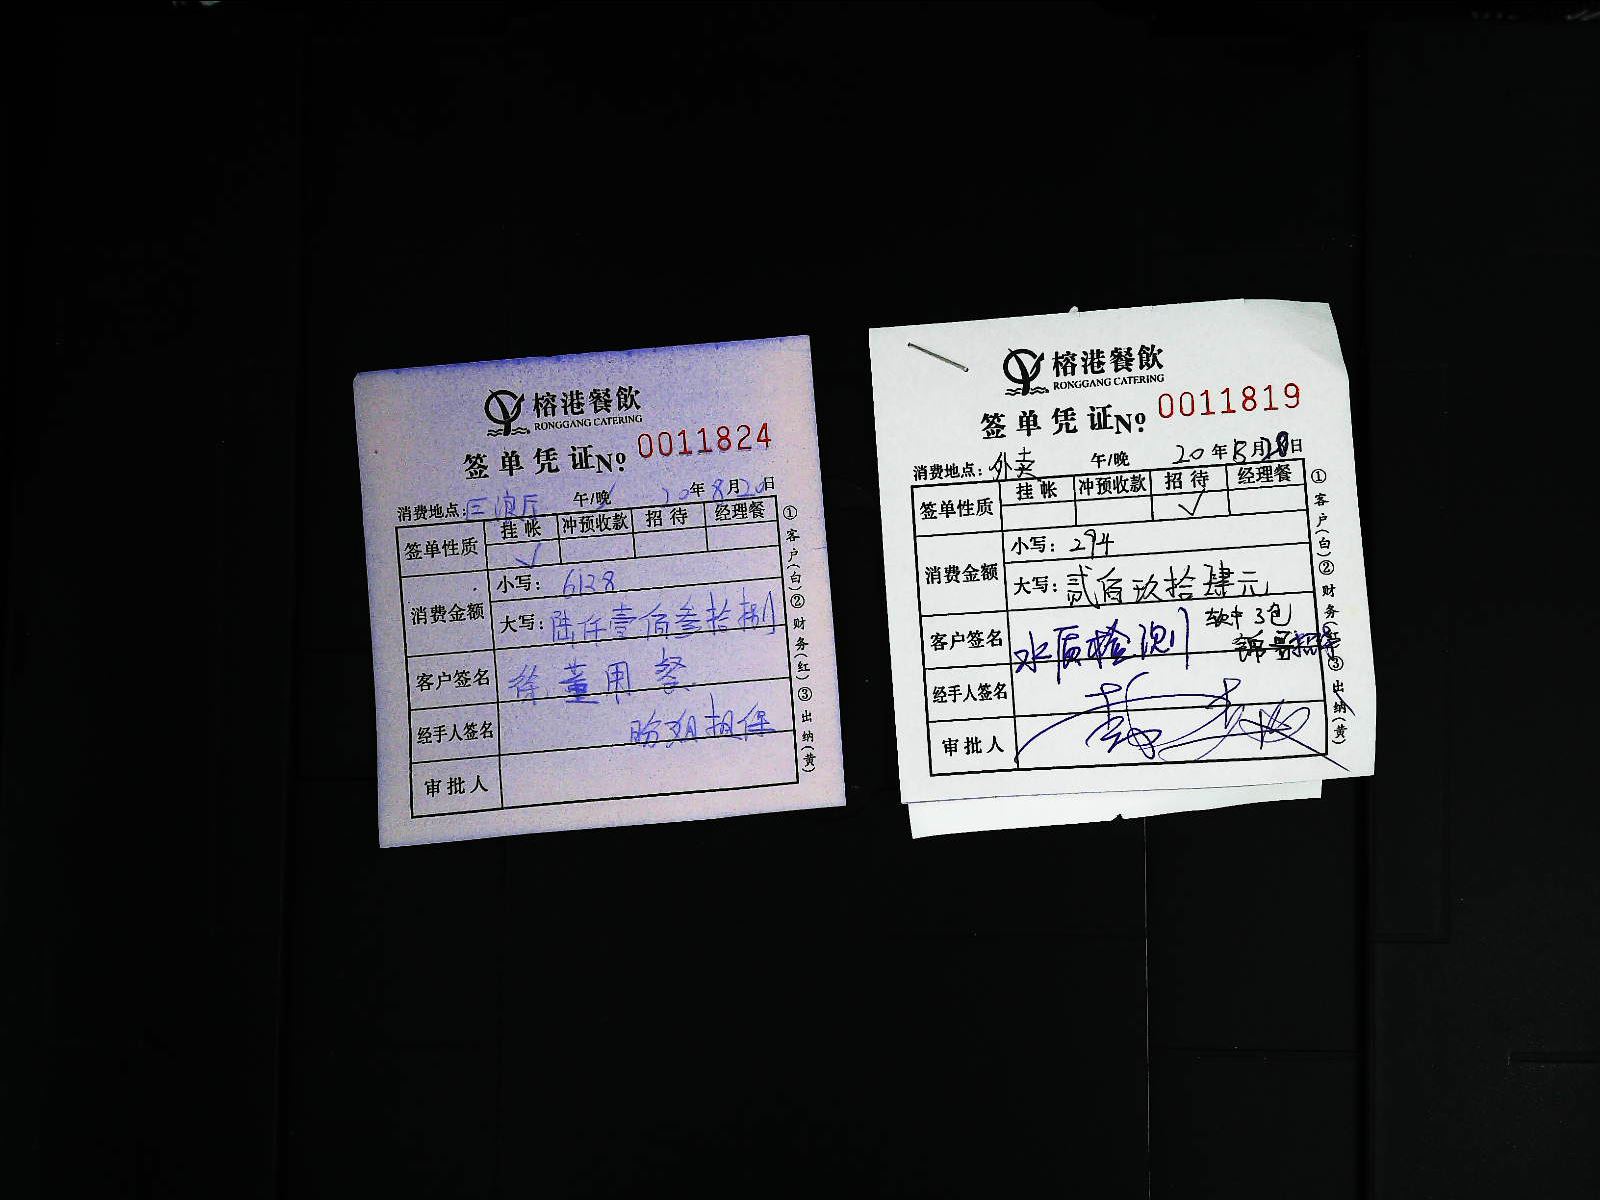 榕港餐飲
RONGGANG CATERING
签单凭证 № 0011824
消费地点: 巨浪厅 午/晚 20年8月20日
签单性质 挂帐 冲预收款 招待 经理餐
✓
消费金额
小写: 6128
大写: 陆仟壹佰叁拾捌
客户签名 徐董用餐
经手人签名 担保
审批人
①客户(白)②财务(红)③出纳(黄)
榕港餐飲
RONGGANG CATERING
签单凭证 № 0011819
消费地点: 外卖 午/晚 20年8月20日
签单性质 挂帐 冲预收款 招待 经理餐
✓
消费金额
小写: 294
大写: 贰佰玖拾肆元
软中3包
客户签名 水质检测
经手人签名
审批人
①客户(白)②财务(红)③出纳(黄)